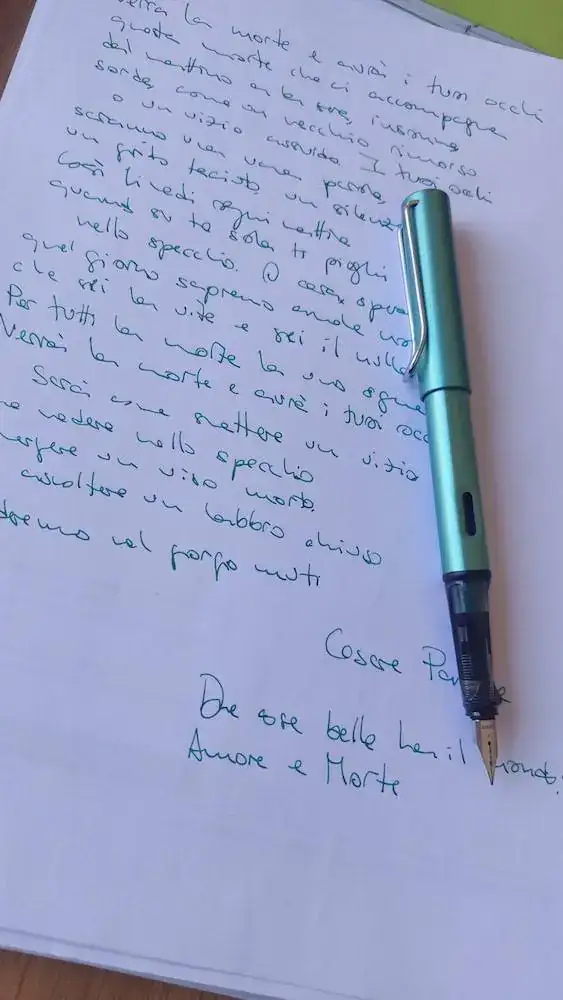 verrà la morte e avrà i tuoi occhi
questa morte che ci accompagna
dal mattino a la sera, insonne
sorda, come un vecchio rimorso
o un vizio assurdo. I tuoi occhi
saranno una vana parola,
un grido taciuto, un silenz
Così li vedi ogni mattina
quando su te sola ti pieghi
nello specchio. O cara spera
quel giorno sapremo anche no
che sei la vita e sei il nulla
Per tutti la morte ha uno sguar
Verrà la morte e avrà i tuoi occ
Sarà come smettere un vizio
me vedere nello specchio
mergere un viso morto,
ascoltare un labbro chiuso
deremo nel gorgo muti
Cesare Pav e
Due cose belle ha il mondo:
Amore e Morte